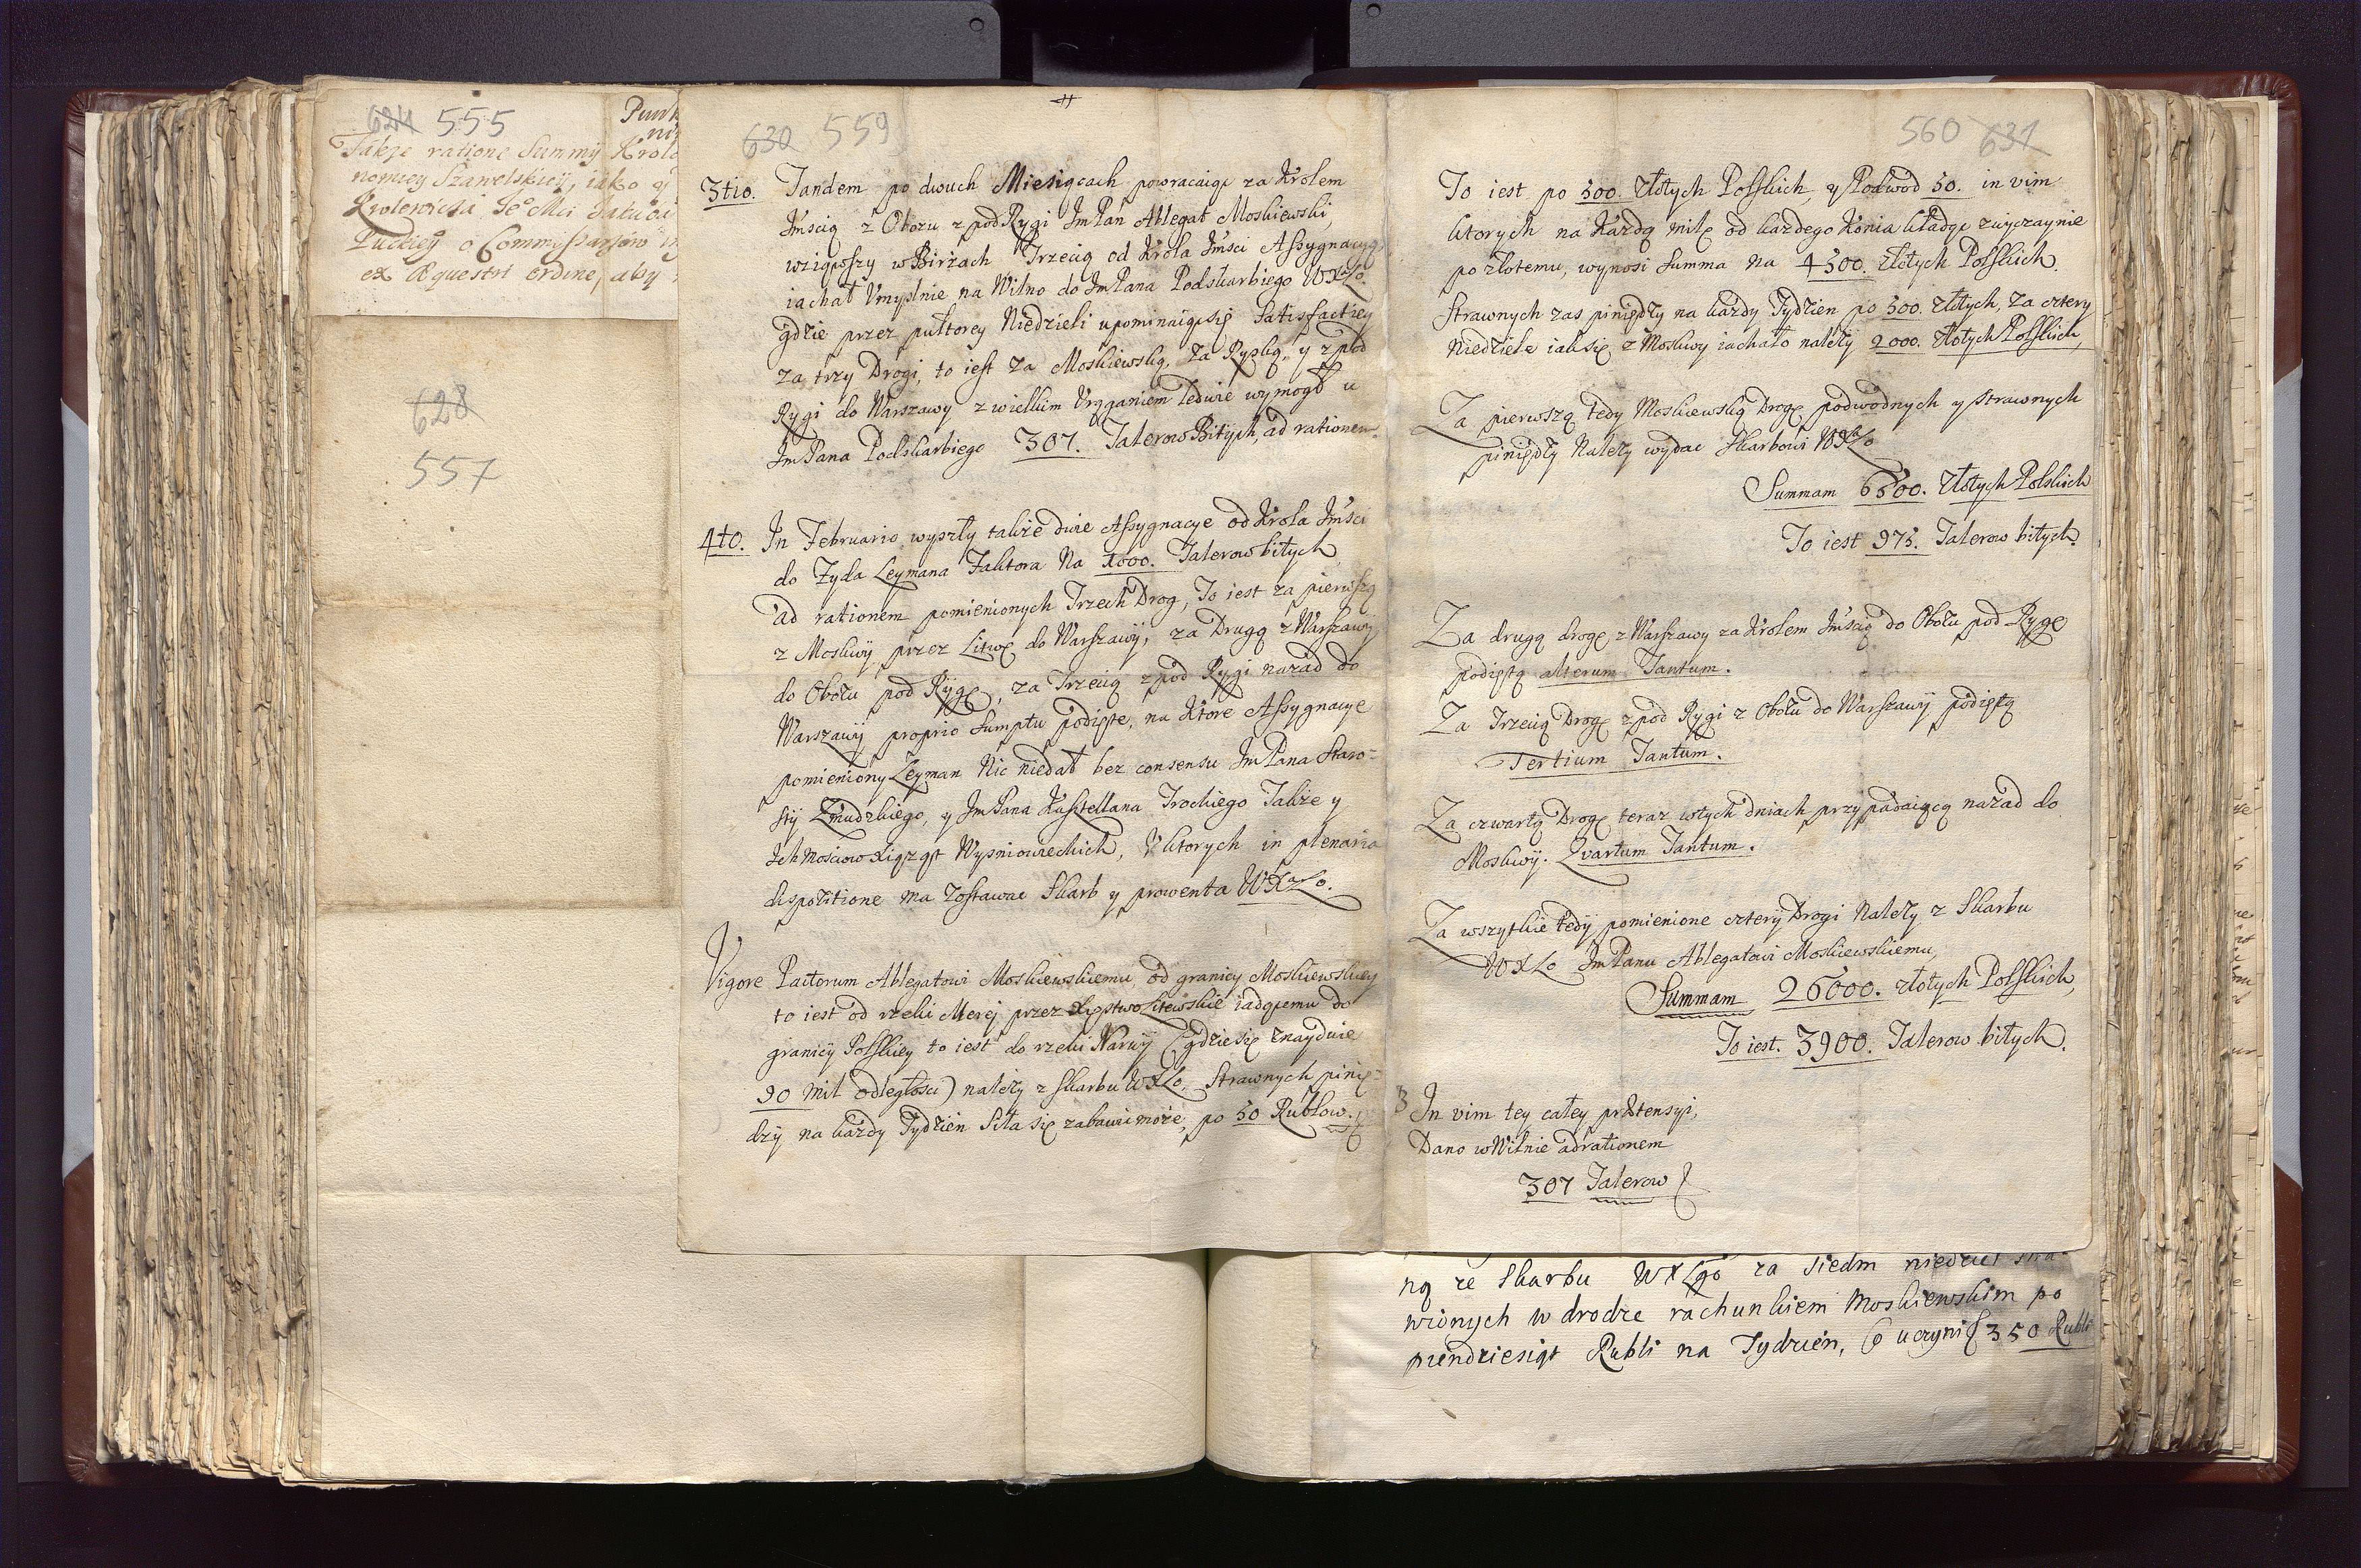 624 555
Punk
Także ratione Summy Krole
nomiey Szawelskiey, iako y
Krolewicza Je° Mci Jakuba
Puckiey o Commissarzow
ex Equestri Ordine, aby
628
557
630 559
3tio. Tandem po dwuch Miesiącach powracaiąc za Krolem
Jmścią z Obozu z pod Rygi JmPan Ablegat Moskiewski,
wziąwszy w Birżach Trzecią od Krola Jmści Assygnacyą
iachał Vmyslnie na Wilno do JmPana Podskarbiego WXLo.
gdzie przez pułtorey Niedzieli upominaiącsię Satisfactiey
za trzy Drogi, to iest za Moskiewską, Za Ryską, y z pod
Rygi do Warszawy z wielkim Vrąganiem ledwie wymogł u
JmPana Podskarbiego 307. Talerow Bitych, ad rationem.
4to. In Februario wyszły także dwie Assygnacye od Krola Jmści
do Żyda Leymana Faktora Na 1000. Talerow bitych
ad rationem pomienionych Trzech Drog, To iest za pierwszą
z Moskwÿ przez Litwę do Warszawÿ, za Drugą z Warszawÿ
do Obozu pod Rÿgę, za Trzecią z pod Rygi nazad do
Warszawÿ proprio Sumptu podięte, na Ktore Assygnacye
pomieniony Leyman Nic niedał bez consensu JmPana Staro-
stÿ Zmudzkiego, y JmPana Kasztellana Trockiego Także y
Ichmościow Xiążąt Wyszniowieckich, V ktorych in plenaria
dispozitione ma zostawac Skarb y prowenta WXaLo.
Vigore Pactorum Ablegatowi Moskiewskiemu, od granicy Moskiewskiey
to iest od rzeki Merej przez Xięstwo Litewskie iadącemu do
granicÿ Polskiey to iest do rzeki Narwÿ (gdzie się znayduie
90 mil odległości) należy z Skarbu WXLo. Strawnych pinię-
dzÿ na każdy Tydzien Siła się zabawi może, po 50 Rublow.
560 631
To iest po 500. Złotych Polskich, y Podwod 50. in vim
ktorych na Każdą milę od każdego Konia kładąc zwyczaynie
po złotemu, wynosi Summa na 4500. Złotych Polskich.
Strawnych zas piniędzy na każdy Tydzien po 500. złotych, Za cztery
Niedziele iak się z Moskwy iachało należy 2000. Złotych Polskich,
Za pierwszą tedy Moskiewską Drogę podwodnych y strawnych
piniędzy Należy wydac Skarbowi WXaLo
Summam 6500. Złotych Polskich
To iest 975. Talerow bitych.
Za drugą drogę, z Warszawy za Krolem Jmścią do Obozu pod Rygę
podiętą alterum Tantum.
Za Trzecią Drogę z pod Rygi z Obozu do Warszawÿ podiętą
Tertium Tantum.
Za czwartą Drogę teraz wtych dniach przypadaiącą nazad do
Moskwÿ. Qvartum Tantum.
Za wszytkie tedÿ pomienione czterÿ Drogi Należy z Skarbu
WXLo JmPanu Ablegatowi Moskiewskiemu,
Summam 26000. złotych Polskich,
To iest. 3900. Talerow bitych.
In vim tey całey prætensyi,
Dano w Wilnie ad rationem
307 Talerow
ną ze Skarbu WXLgo za siedm niedziel stra-
wionych w drodze rachunkiem Moskiewskim po
piendziesiąt Rubli na Tydzien, co uczyni 350 Rubli